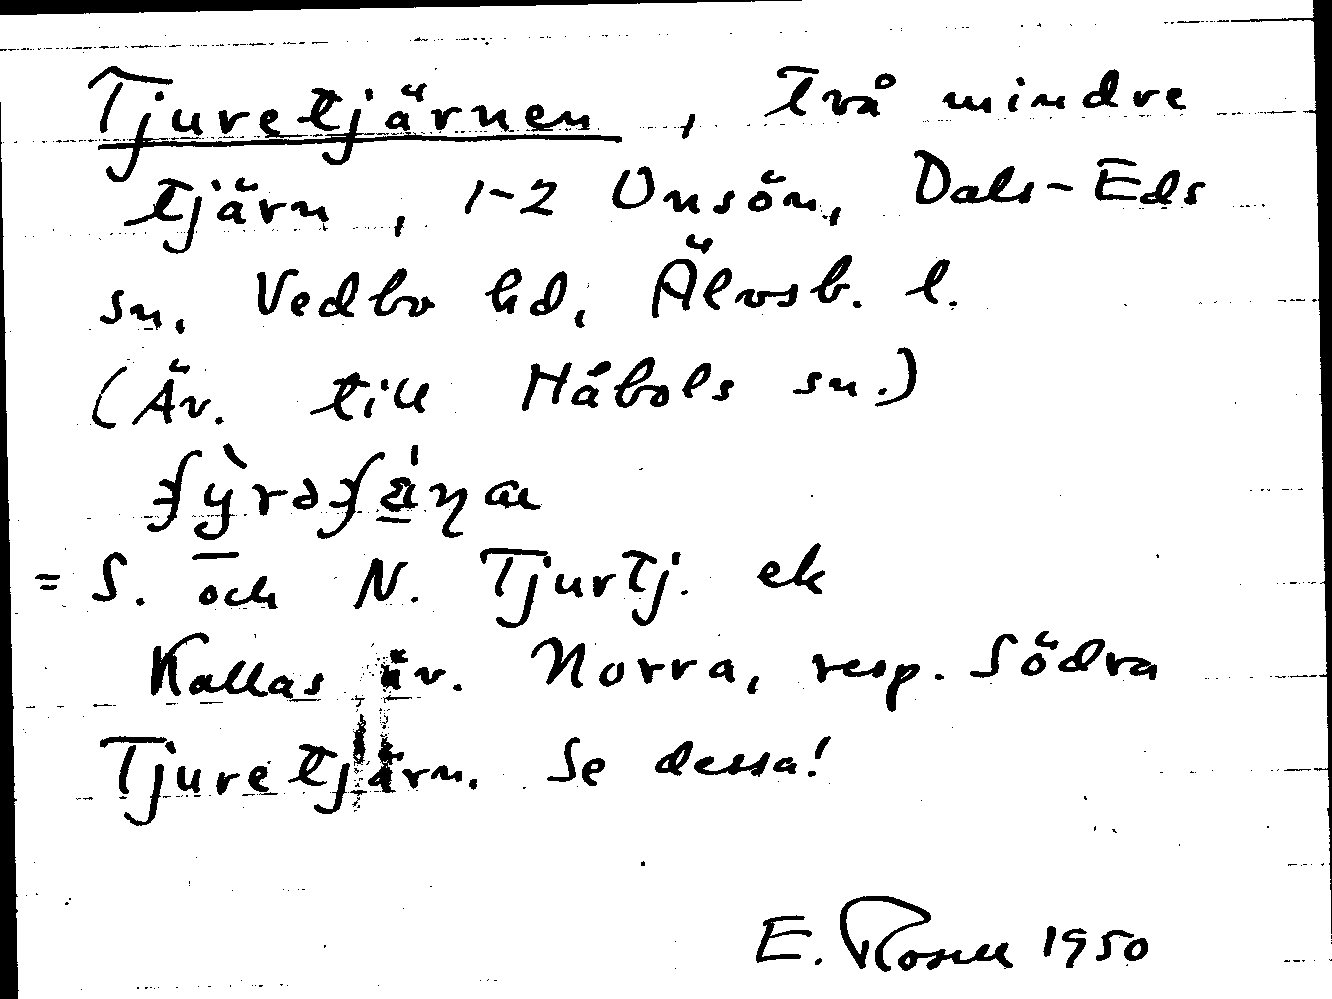 Tjuretjärnen, två mindre
tjärn, 1-2 Onsön, Dals-Eds
sn, Vedbo hd, Älvsb. l.
(Äv. till Håbols sn.)
= S. och N. Tjurtj. ek
Kallas äv. Norra, resp. Södra
Tjuretjärn. Se dessa!
E. Rosell 1950